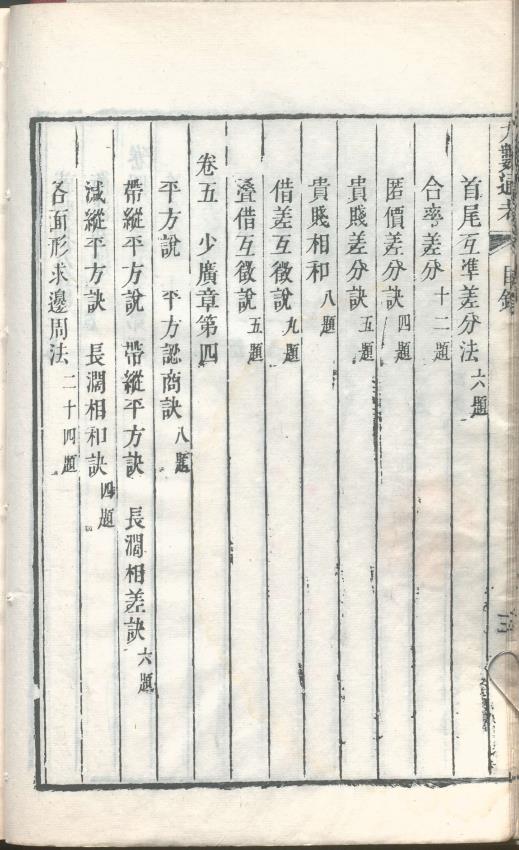 九數通考
目錄
三
首尾互準差分法 六題
合率差分 十二題
匿價差分訣 四題
貴賤差分訣 五題
貴賤相和 八題
借差互徵說 九題
疊借互徵說 五題
卷五 少廣章第四
平方說 平方認商訣 八題
帶縱平方說 帶縱平方訣 長濶相差訣 六題
減縱平方訣 長濶相和訣 四題
各面形求邊周法 二十四題